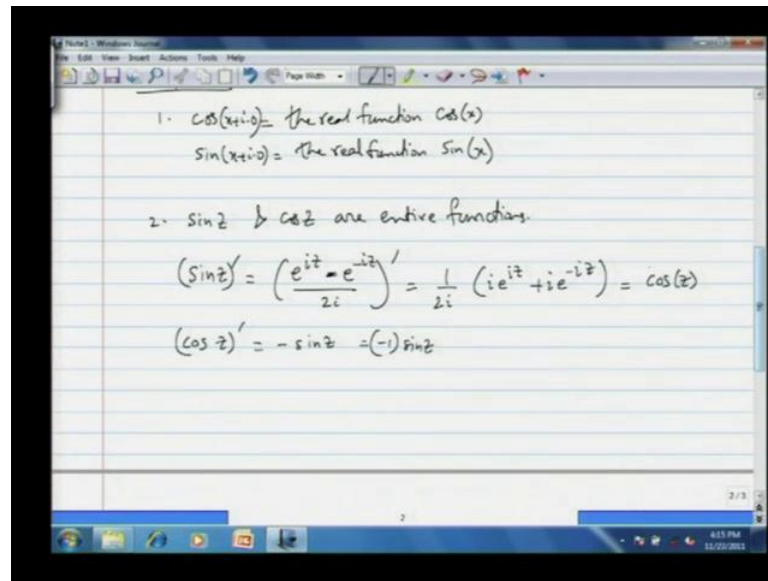 Note1 - Windows Journal
File Edit View Insert Actions Tools Help
Page Width
1. cos(x+i·0) = the real function cos(x)
sin(x+i·0) = the real function sin(x)
2. sin z & cos z are entire functions.
(sin z)' = ((e^{iz} - e^{-iz})/2i)' = 1/2i (ie^{iz} + ie^{-iz}) = cos(z)
(cos z)' = - sin z = (-1) sin z
2/3
2
4:15 PM
11/22/2011